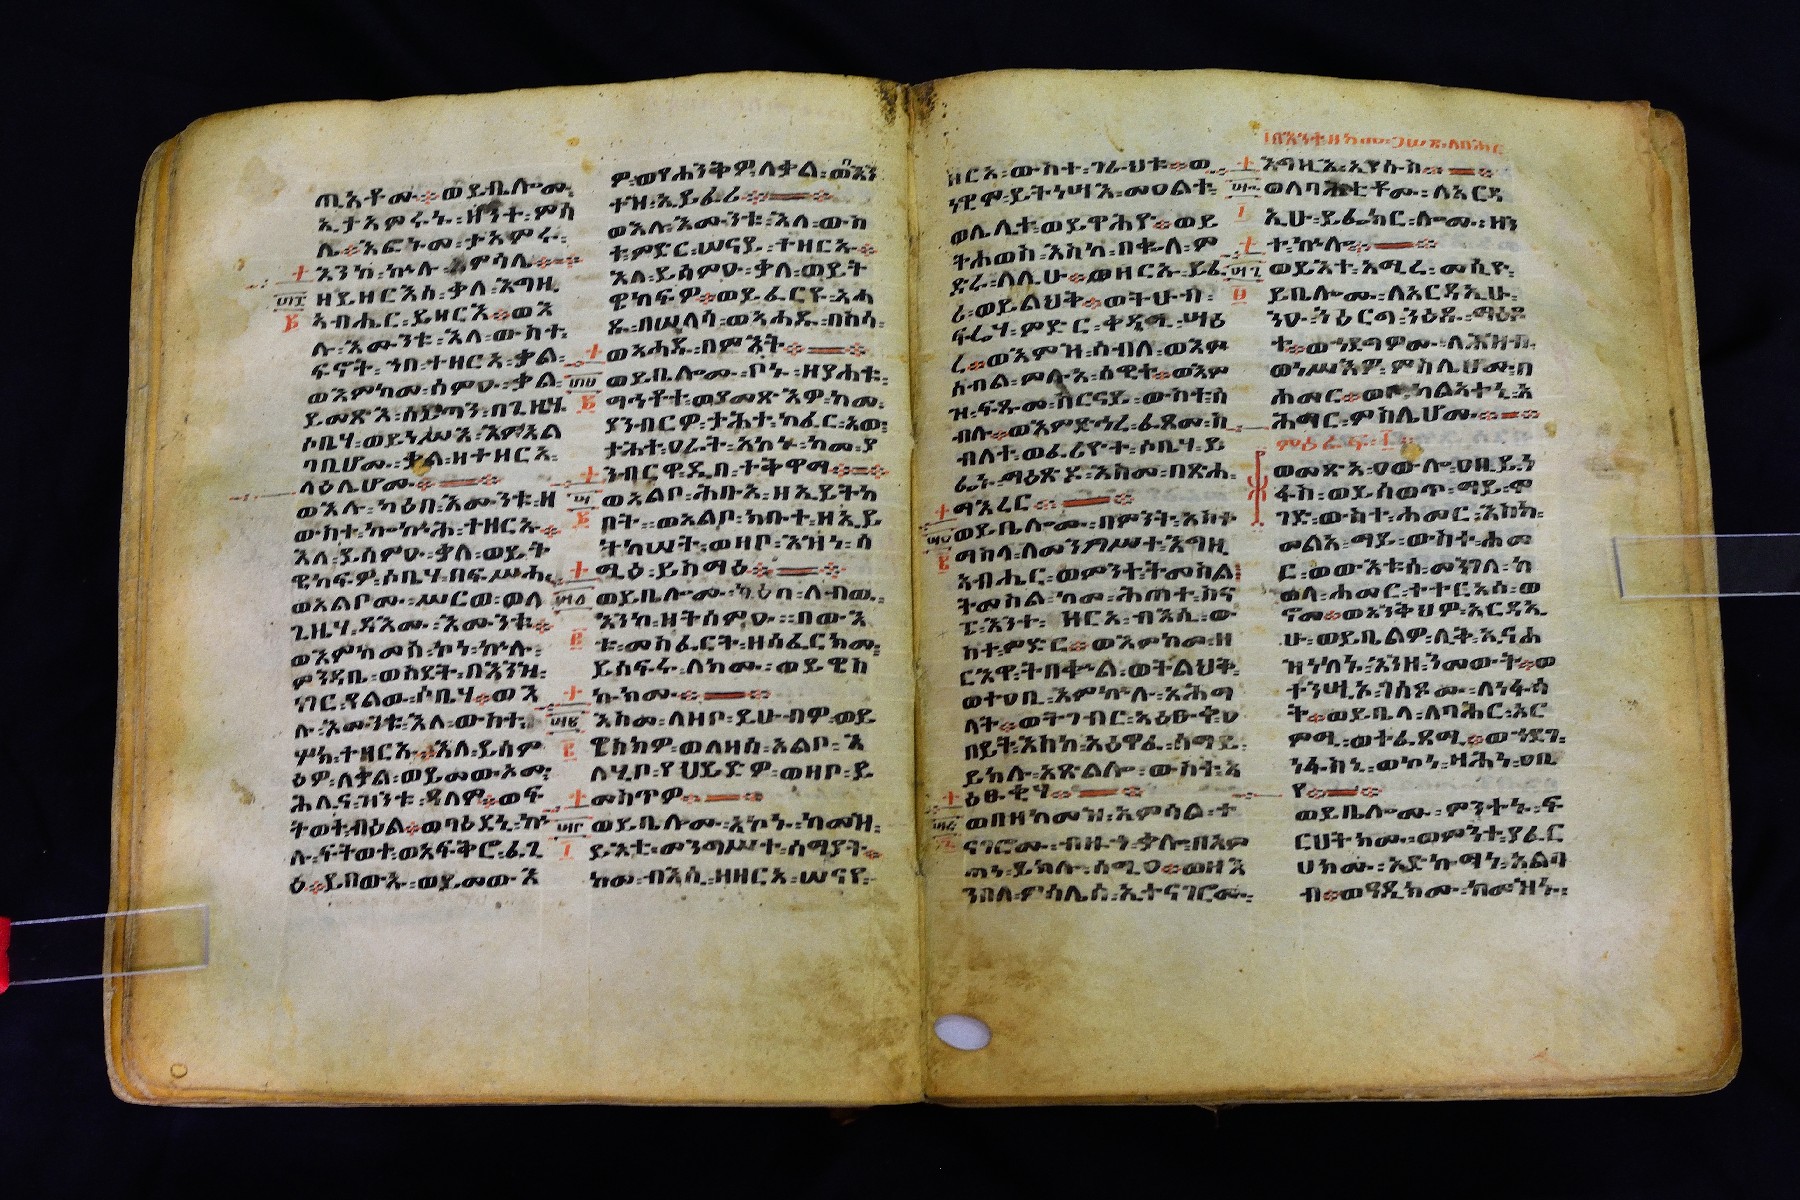 ጢአቶሙ፡፡ወይቤሎሙ፡
ኢታአምሩኑ፡ዘንተ፡ምሳ
ሌ፡፡እፎኑመ፡ታአምሩ፡
እንከ፡ኵሎ፡ምሳሌ፡፡
ዘይዘርእሰ፡ቃለ፡እግዚ
አብሔር፡ይዘርእ፡፡ወእ
ሉ፡እሙንቱ፡እለ፡ውስተ፡
ፍኖት፡ኀበ፡ተዘርአ፡ቃል፡
ወእምከመ፡ሰምዑ፡ቃለ፡
ይመጽእ፡ሰይጣን፡በጊዜሃ
ሶቤሃ፡ወይነሥእ፡እምእል
ባቢሆሙ፡ቃለ፡ዘተዘርአ፡
ላዕሌሆሙ፡፡
ወእሉ፡ካዕበ፡እሙንቱ፡ዘ
ውስተ፡ኰኵሕ፡ተዘርአ፡፡
እለ፡ይሰምዑ፡ቃለ፡ወይት
ዌከፍዎ፡ሶቤሃ፡በፍሥሓ፡
ወአልቦሙ፡ሥርወ፡ወለ
ጊዜሃ፡ዳእሙ፡እሙንቱ፡፡
ወእምከመሰ፡ኮነ፡ኵሉ፡
ምንዳቤ፡ወስደት፡በእንዝ፡
ነገር፡የልው፡ሶቤሃ፡፡ወእ
ሉ፡እሙንቱ፡እለ፡ውስተ፡
ሦክ፡ተዘርአ፡፡እለ፡ይሰም
ዕዎ፡ለቃል፡ወይመውኦሙ፡
ሕሊና፡ዝንቱ፡ዓለም፡፡ወፍ
ትወት፡ብዕል፡፡ወባዕደኒ፡ኵ
ሉ፡ፍትወተ፡ወአፍቅሮ፡ፈጊ
ዕ፡፡ይበውኡ፡ወይመውእ
ዎ፡ወየሐንቅዎ፡ለቃል፡ወእን
ተዝ፡ኢይፈሪ፡፡
ወእለ፡እሙንቱ፡እለ፡ውስ
ተ፡ምድር፡ሠናይ፡ተዘርአ፡፡
እለ፡ይሰምዑ፡ቃለ፡ወይት
ዌከፍዎ፡፡ወይፈርዩ፡አሐ
ዱ፡በሠላሳ፡ወአሐዱ፡በስሳ፡
ወአሐዱ፡በምእት፡፡
ወይቤሎሙ፡ቦኑ፡ዘያሐቱ፡
ማኅቶተ፡ወያመጽእዎ፡ከመ፡
ያንብርዎ፡ታሕተ፡ከፈር፡አው፡
ታሕተ፡ዐራት፡አኮኑ፡ከመ፡ያ
ንብርዋ፡ዲበ፡ተቅዋማ፡፡
ወአልቦ፡ኅቡእ፡ዘኢይትከ
ሠት፡ወአልቦ፡ክቡት፡ዘኢይ
ትከሠት፡ወዘቦ፡እዝነ፡ሰ
ሚዕ፡ይስማዕ፡፡
ወይቤሎሙ፡ካዕበ፡ለብው፡
እንከ፡ዘትሰምዑ፡፡በውእ
ቱ፡መስፈርት፡ዘሰፈርክሙ፡
ይሰፍሩ፡ለክሙ፡ወይዌስ
ኩክሙ፡፡
እስመ፡ለዘቦ፡ይሁብዎ፡ወይ
ዌስክዎ፡ወለዘሰ፡አልቦ፡እ
ለሂ፡ቦ፡የሀይድዎ፡ወዘቦ፡ይ
መስጥዎ፡፡
ወይቤሎሙ፡አኮኑ፡ከመዝ፡
ይእቲ፡መንግሥተ፡ሰማያት፡፡
ከመ፡ብእሲ፡ዘዘርአ፡ሠናየ፡
ዘርአ፡ውስተ፡ገራህቱ፡፡ወ
ነዊም፡ይትነሣእ፡መዐልተ፡
ወሌሊተ፡ወይዋሕየ፡፡ወይ
ትሐወስ፡እስከ፡በቁለ፡ም
ድረ፡ለሊሁ፡፡ወዘርእ፡ይፈ
ሪ፡ወይልህቅ፡፡ወትሁብ፡
ፍሬሃ፡ምድር፡ቀዳሚ፡ሣዕ
ረ፡፡ወእምዝ፡ሰብለ፡ወእም
ሰብል፡ምሉእ፡ሰዊተ፡፡ወእም
ዝ፡ፍጹመ፡ስርናይ፡ውስቲተ፡ሰ
ብሉ፡፡ወእምድኅረ፡ፈጸመ፡ሰ
ብለተ፡ወፈሪየተ፡ሶቤሃ፡ይ
ፌኑ፡ማዕጸደ፡እስመ፡በጽሐ፡
ማእረር፡፡
ወይቤሎሙ፡በምንት፡እስተ
ማስላ፡ለመንግሥተ፡እግዚ
አብሔር፡ወምንተ፡ትመስል፡
ትመስል፡ከመ፡ሕጠተ፡ስና
ፔ፡እንተ፡ዘርአ፡ብእሲ፡ው
ስተ፡ምድር፡፡ወእምከመ፡ዘ
ርእዋ፡ትበቍል፡ወትልህቅ፡
ወተዐቢ፡እምኵሉ፡አሕማ
ላት፡፡ወትገብር፡አዕፁቀ፡ዐ
በይተ፡እስከ፡አዕዋፈ፡ሰማይ፡
ይክሉ፡አጽልሎ፡ውስተ፡አ
ዕፁቂሃ፡፡
ወበዘከመዝ፡አምሳል፡ተ
ናገሮሙ፡ብዙኀ፡ቃለ፡በአም
ጣነ፡ይክሉ፡ሰሚዐ፡፡ወዘእ
ንበለ፡ምሳሌሰ፡ኢተናገሮሙ፡
በእንተ፡ዘከመ፡ገሠጸ፡ለባሕር
እግዚእ፡ኢየሱስ፡፡
ወለባሕቲቶሙ፡ለአርዳ
ኢሁ፡ይፌክር፡ሎሙ፡ዘን
ተ፡ኵሎ፡፡
ወይእተ፡አሚረ፡መሲዮ፡
ይቤሎሙ፡ለአርዳኢሁ፡
ንዑ፡ንዕርግ፡ንዕዱ፡ማዕዶ
ተ፡፡ወኀደግዎሙ፡ለሕዝብ፡
ወነሥእዎ፡ምስሌሆሙ፡በ
ሐመር፡፡ወቦ፡ካልኣትኒ፡አ
ሕማር፡ምስሌሆሙ፡፡
ምዕራፍ፡፲፡
ወመጽአ፡ዐውሎ፡ዐቢይ፡ን
ፋስ፡ወይሰወጥ፡ማይ፡ሞ
ገድ፡ውስተ፡ሐመር፡እስከ፡
መልአ፡ማይ፡ውስተ፡ሐመ
ር፡፡ወውእቱሰ፡መንገለ፡ከ
ዋላ፡ሐመር፡ተተርአሰ፡ወ
ኖመ፡፡ወአንቅህዎ፡አርዳኢ
ሁ፡ወይቤልዎ፡ሊቅ፡ኢናሐ
ዝነከኑ፡እንዘ፡ንመውት፡፡ወ
ተንሢኦ፡ገሠጾሙ፡ለነፋሳ
ት፡፡ወይቤላ፡ለባሕር፡አር
ምሚ፡ወተፈፀሚ፡፡ወኀደገ፡
ነፋስኒ፡ወኮነ፡ዛሕነ፡ዐቢ
የ፡፡
ወይቤሎሙ፡ምንተኑ፡ፍ
ርህተክሙ፡ወምንተ፡ያፈር
ሀክሙ፡ኢድኩማነ፡አልባ
ብ፡፡ወዓዲክሙ፡ከመዝኑ፡